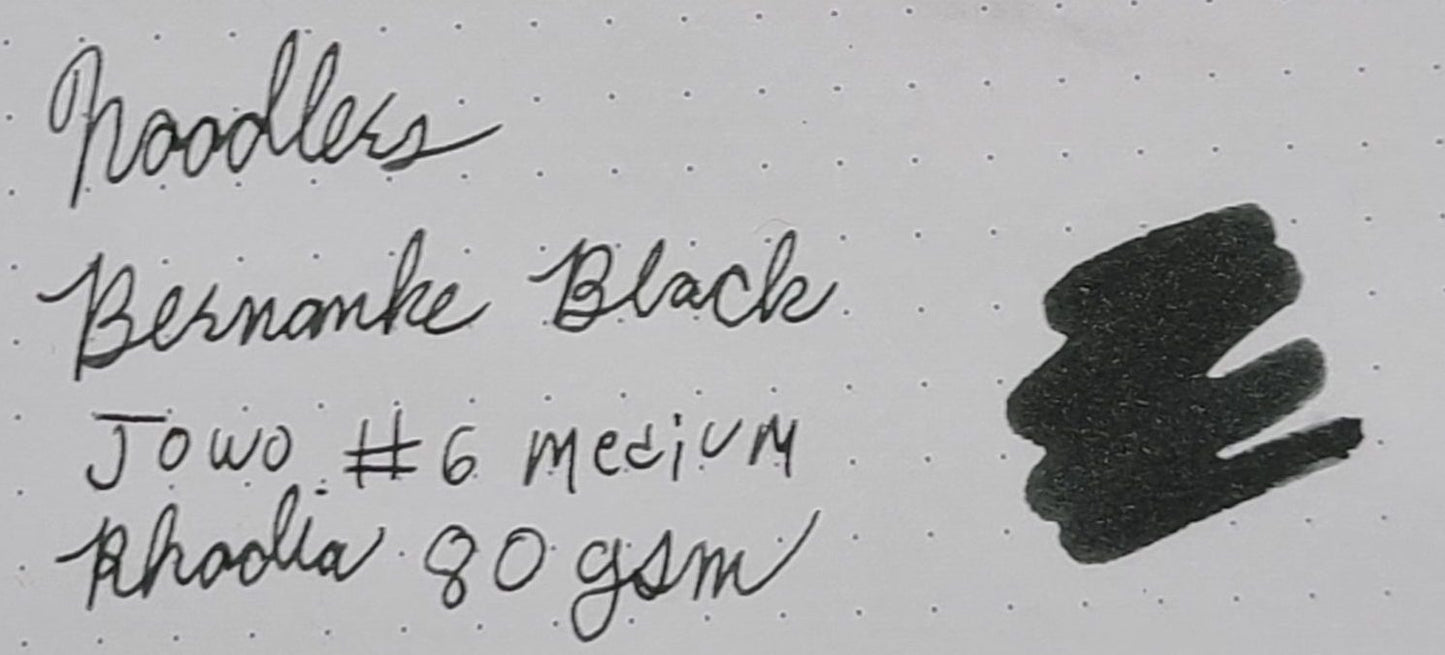 Noodlers
Bernanke Black
Jowo #6 medium
Rhodia 80 gsm